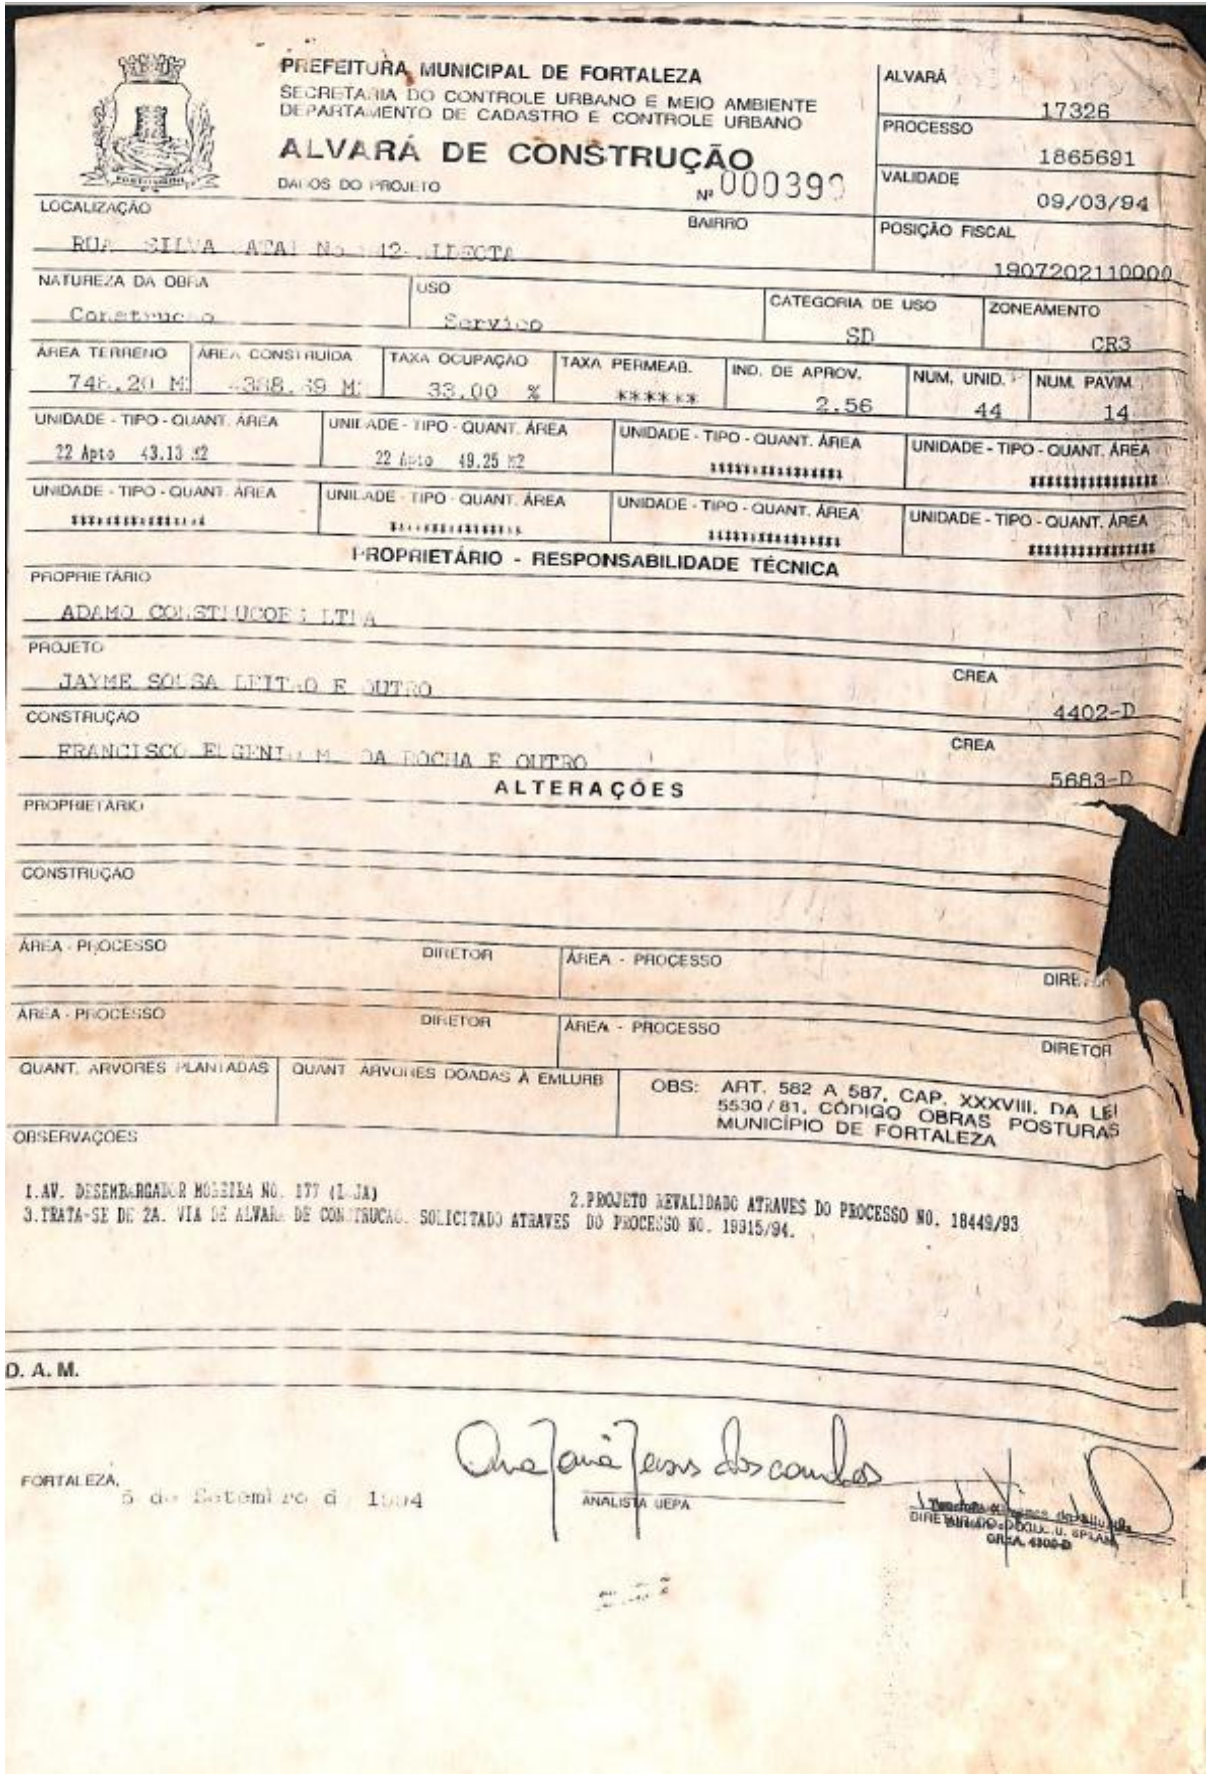 PREFEITURA MUNICIPAL DE FORTALEZA
SECRETARIA DO CONTROLE URBANO E MEIO AMBIENTE
DEPARTAMENTO DE CADASTRO E CONTROLE URBANO
ALVARÁ DE CONSTRUÇÃO
DADOS DO PROJETO
Nº 000399
ALVARÁ
17326
PROCESSO
1865691
VALIDADE
09/03/94
LOCALIZAÇÃO
BAIRRO
RUA SILVA
POSIÇÃO FISCAL
1907202110000
NATUREZA DA OBRA
Construcao
USO
Servico
CATEGORIA DE USO
SD
ZONEAMENTO
CR3
ÁREA TERRENO
748.20 M2
ÁREA CONSTRUÍDA
M2
TAXA OCUPAÇÃO
33.00 %
TAXA PERMEAB.
******
IND. DE APROV.
2.56
NUM. UNID.
44
NUM. PAVIM.
14
UNIDADE - TIPO - QUANT. ÁREA
22 Apto 43.13 M2
UNIDADE - TIPO - QUANT. ÁREA
22 Apto 49.25 M2
UNIDADE - TIPO - QUANT. ÁREA
****************
UNIDADE - TIPO - QUANT. ÁREA
****************
UNIDADE - TIPO - QUANT. ÁREA
****************
UNIDADE - TIPO - QUANT. ÁREA
****************
UNIDADE - TIPO - QUANT. ÁREA
****************
UNIDADE - TIPO - QUANT. ÁREA
****************
PROPRIETÁRIO - RESPONSABILIDADE TÉCNICA
PROPRIETÁRIO
ADAMO CONSTRUCOES LTDA
PROJETO
JAYME SOUSA LEITAO E OUTRO
CREA
4402-D
CONSTRUÇÃO
FRANCISCO EUGENIO M. DA ROCHA E OUTRO
CREA
5683-D
ALTERAÇÕES
PROPRIETÁRIO
CONSTRUÇÃO
ÁREA - PROCESSO
DIRETOR
ÁREA - PROCESSO
DIRETOR
ÁREA - PROCESSO
DIRETOR
ÁREA - PROCESSO
DIRETOR
QUANT. ARVORES PLANTADAS
QUANT ÁRVORES DOADAS À EMLURB
OBS: ART. 582 A 587, CAP. XXXVIII, DA LEI
5530/81, CÓDIGO OBRAS POSTURAS
MUNICÍPIO DE FORTALEZA
OBSERVAÇÕES
1.AV. DESEMBARGADOR MOREIRA NO. 177 (LOJA) 2.PROJETO REVALIDADO ATRAVES DO PROCESSO NO. 18449/93
3.TRATA-SE DE 2A. VIA DE ALVARA DE CONSTRUCAO. SOLICITADO ATRAVES DO PROCESSO NO. 19915/94.
D. A. M.
FORTALEZA,
5 de Setembro de 1994
ANALISTA UEPA